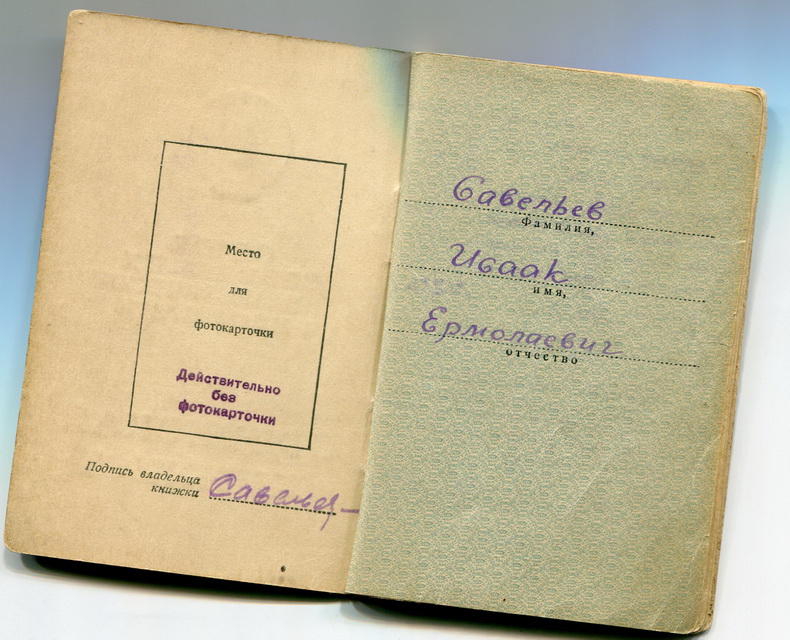 Место
для
фотокарточки
Действительно
без
фотокарточки
Подпись владельца
книжки Савелье
Савельев
фамилия,
Исаак
имя,
Ермолаевич
отчество